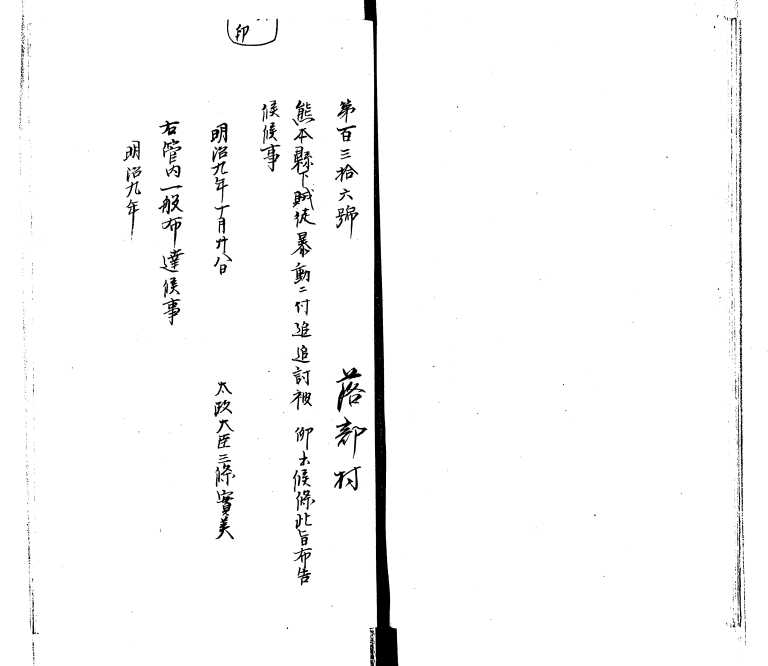 印
第百三拾六號
落部村
熊本縣下賊徒暴動ニ付追追討被 仰出候條此旨布告
候候事
明治九年十月廿八日
太政大臣三條實美
右管内一般布達候事
明治九年